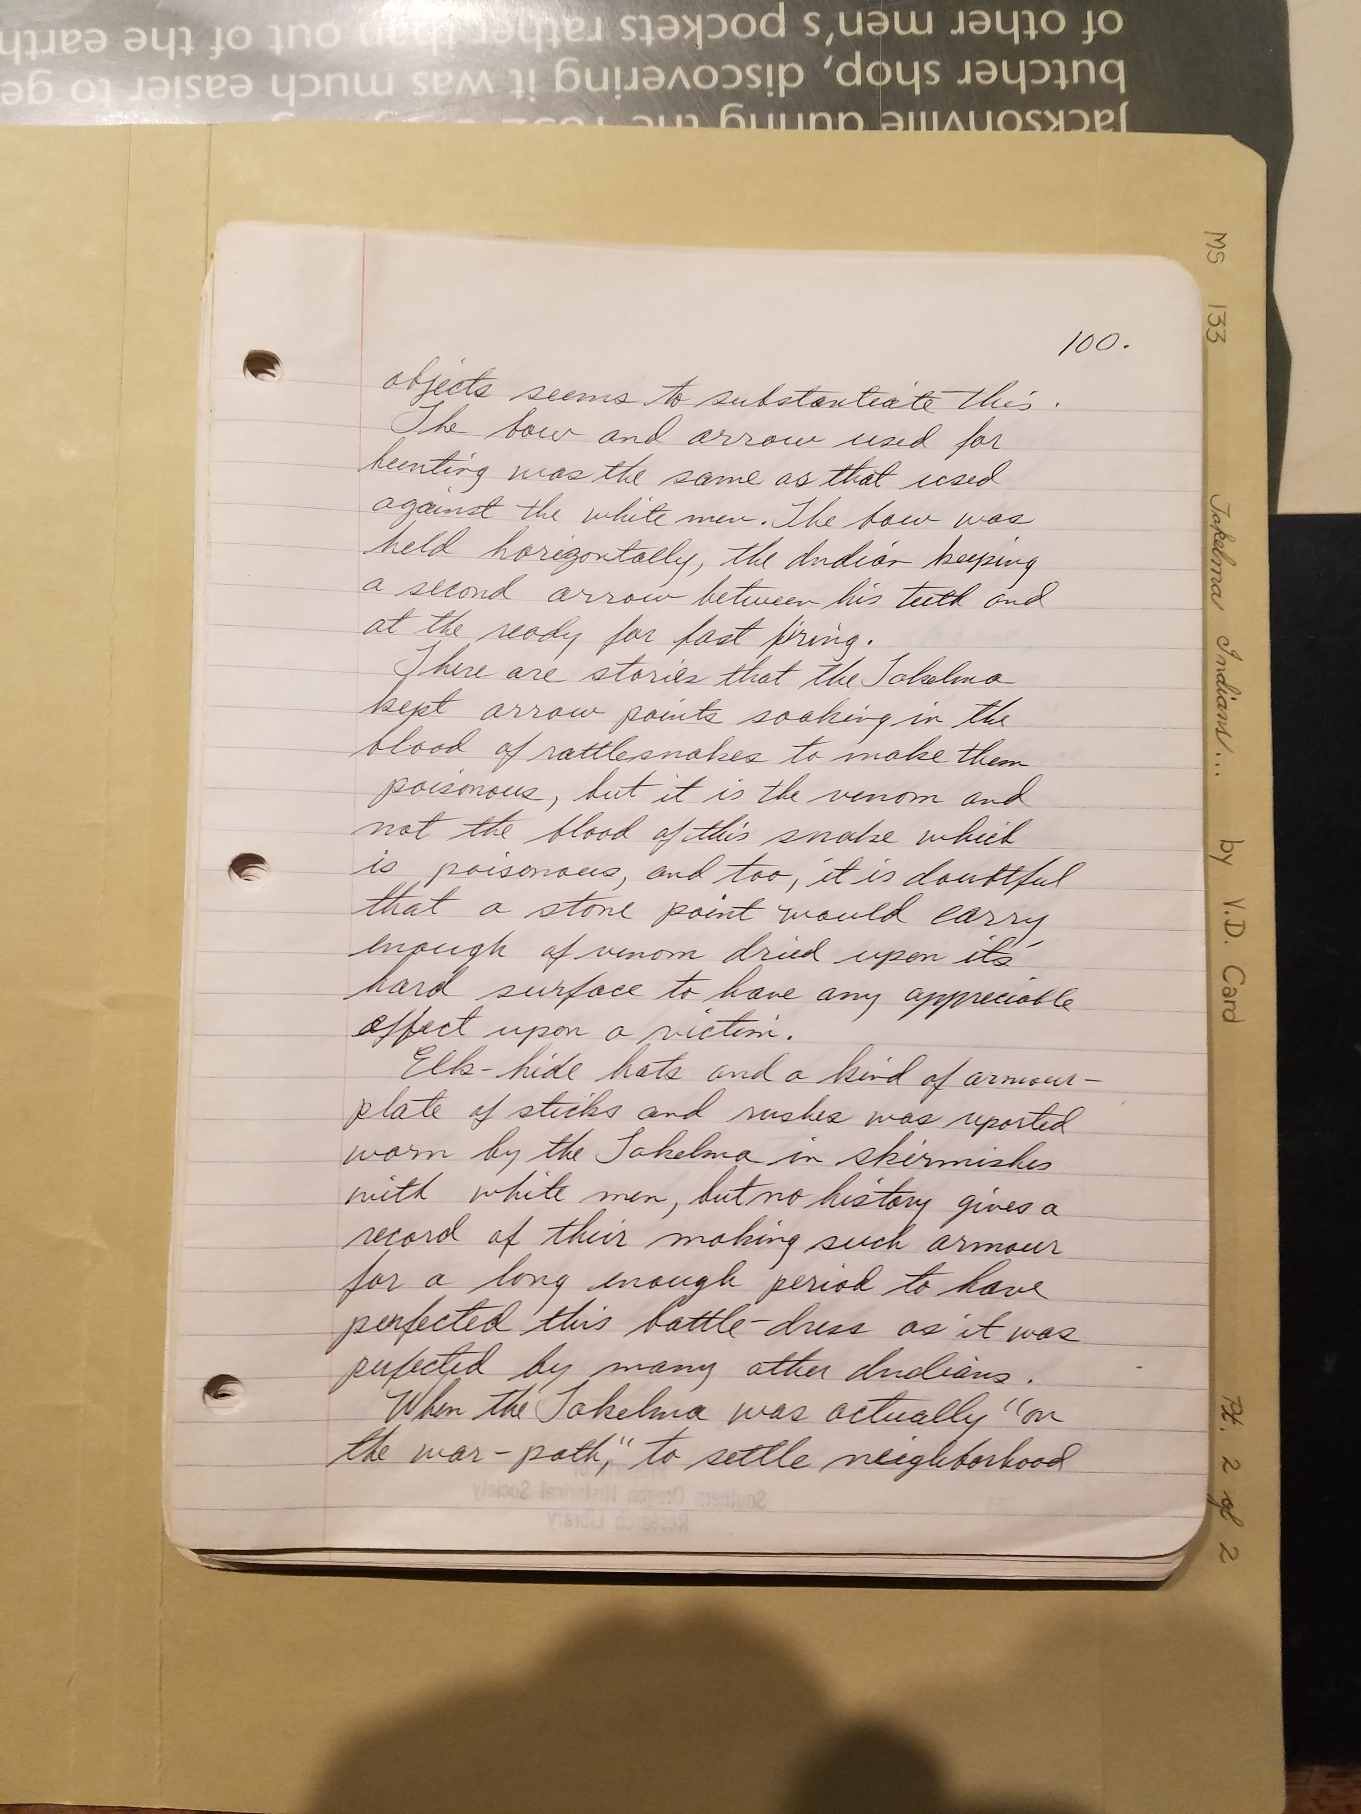 of other men's pockets rather than out of the earth
butcher shop, discovering it was much easier to ge
Jacksonville during the 1852
100.
objects seems to substantiate this.
The bow and arrow used for
hunting was the same as that used
against the white men. The bow was
held horizontally, the Indian keeping
a second arrow between his teeth and
at the ready for fast firing.
There are stories that the Takelma
kept arrow points soaking in the
blood of rattlesnakes to make them
poisonous, but it is the venom and
not the blood of this snake which
is poisonous, and too, it is doubtful
that a stone point would carry
enough of venom dried upon its'
hard surface to have any appreciable
effect upon a victim.
Elk-hide hats and a kind of armour-
plate of sticks and rushes was reported
worn by the Takelma in skirmishes
with white men, but no history gives a
record of their making such armour
for a long enough period to have
perfected this battle-dress as it was
perfected by many other Indians.
When the Takelma was actually "on
the war-path," to settle neighborhood
Southern Oregon Historical Society
Research Library
MS 133 Takelma Indians... by V.D. Card Pt. 2 of 2